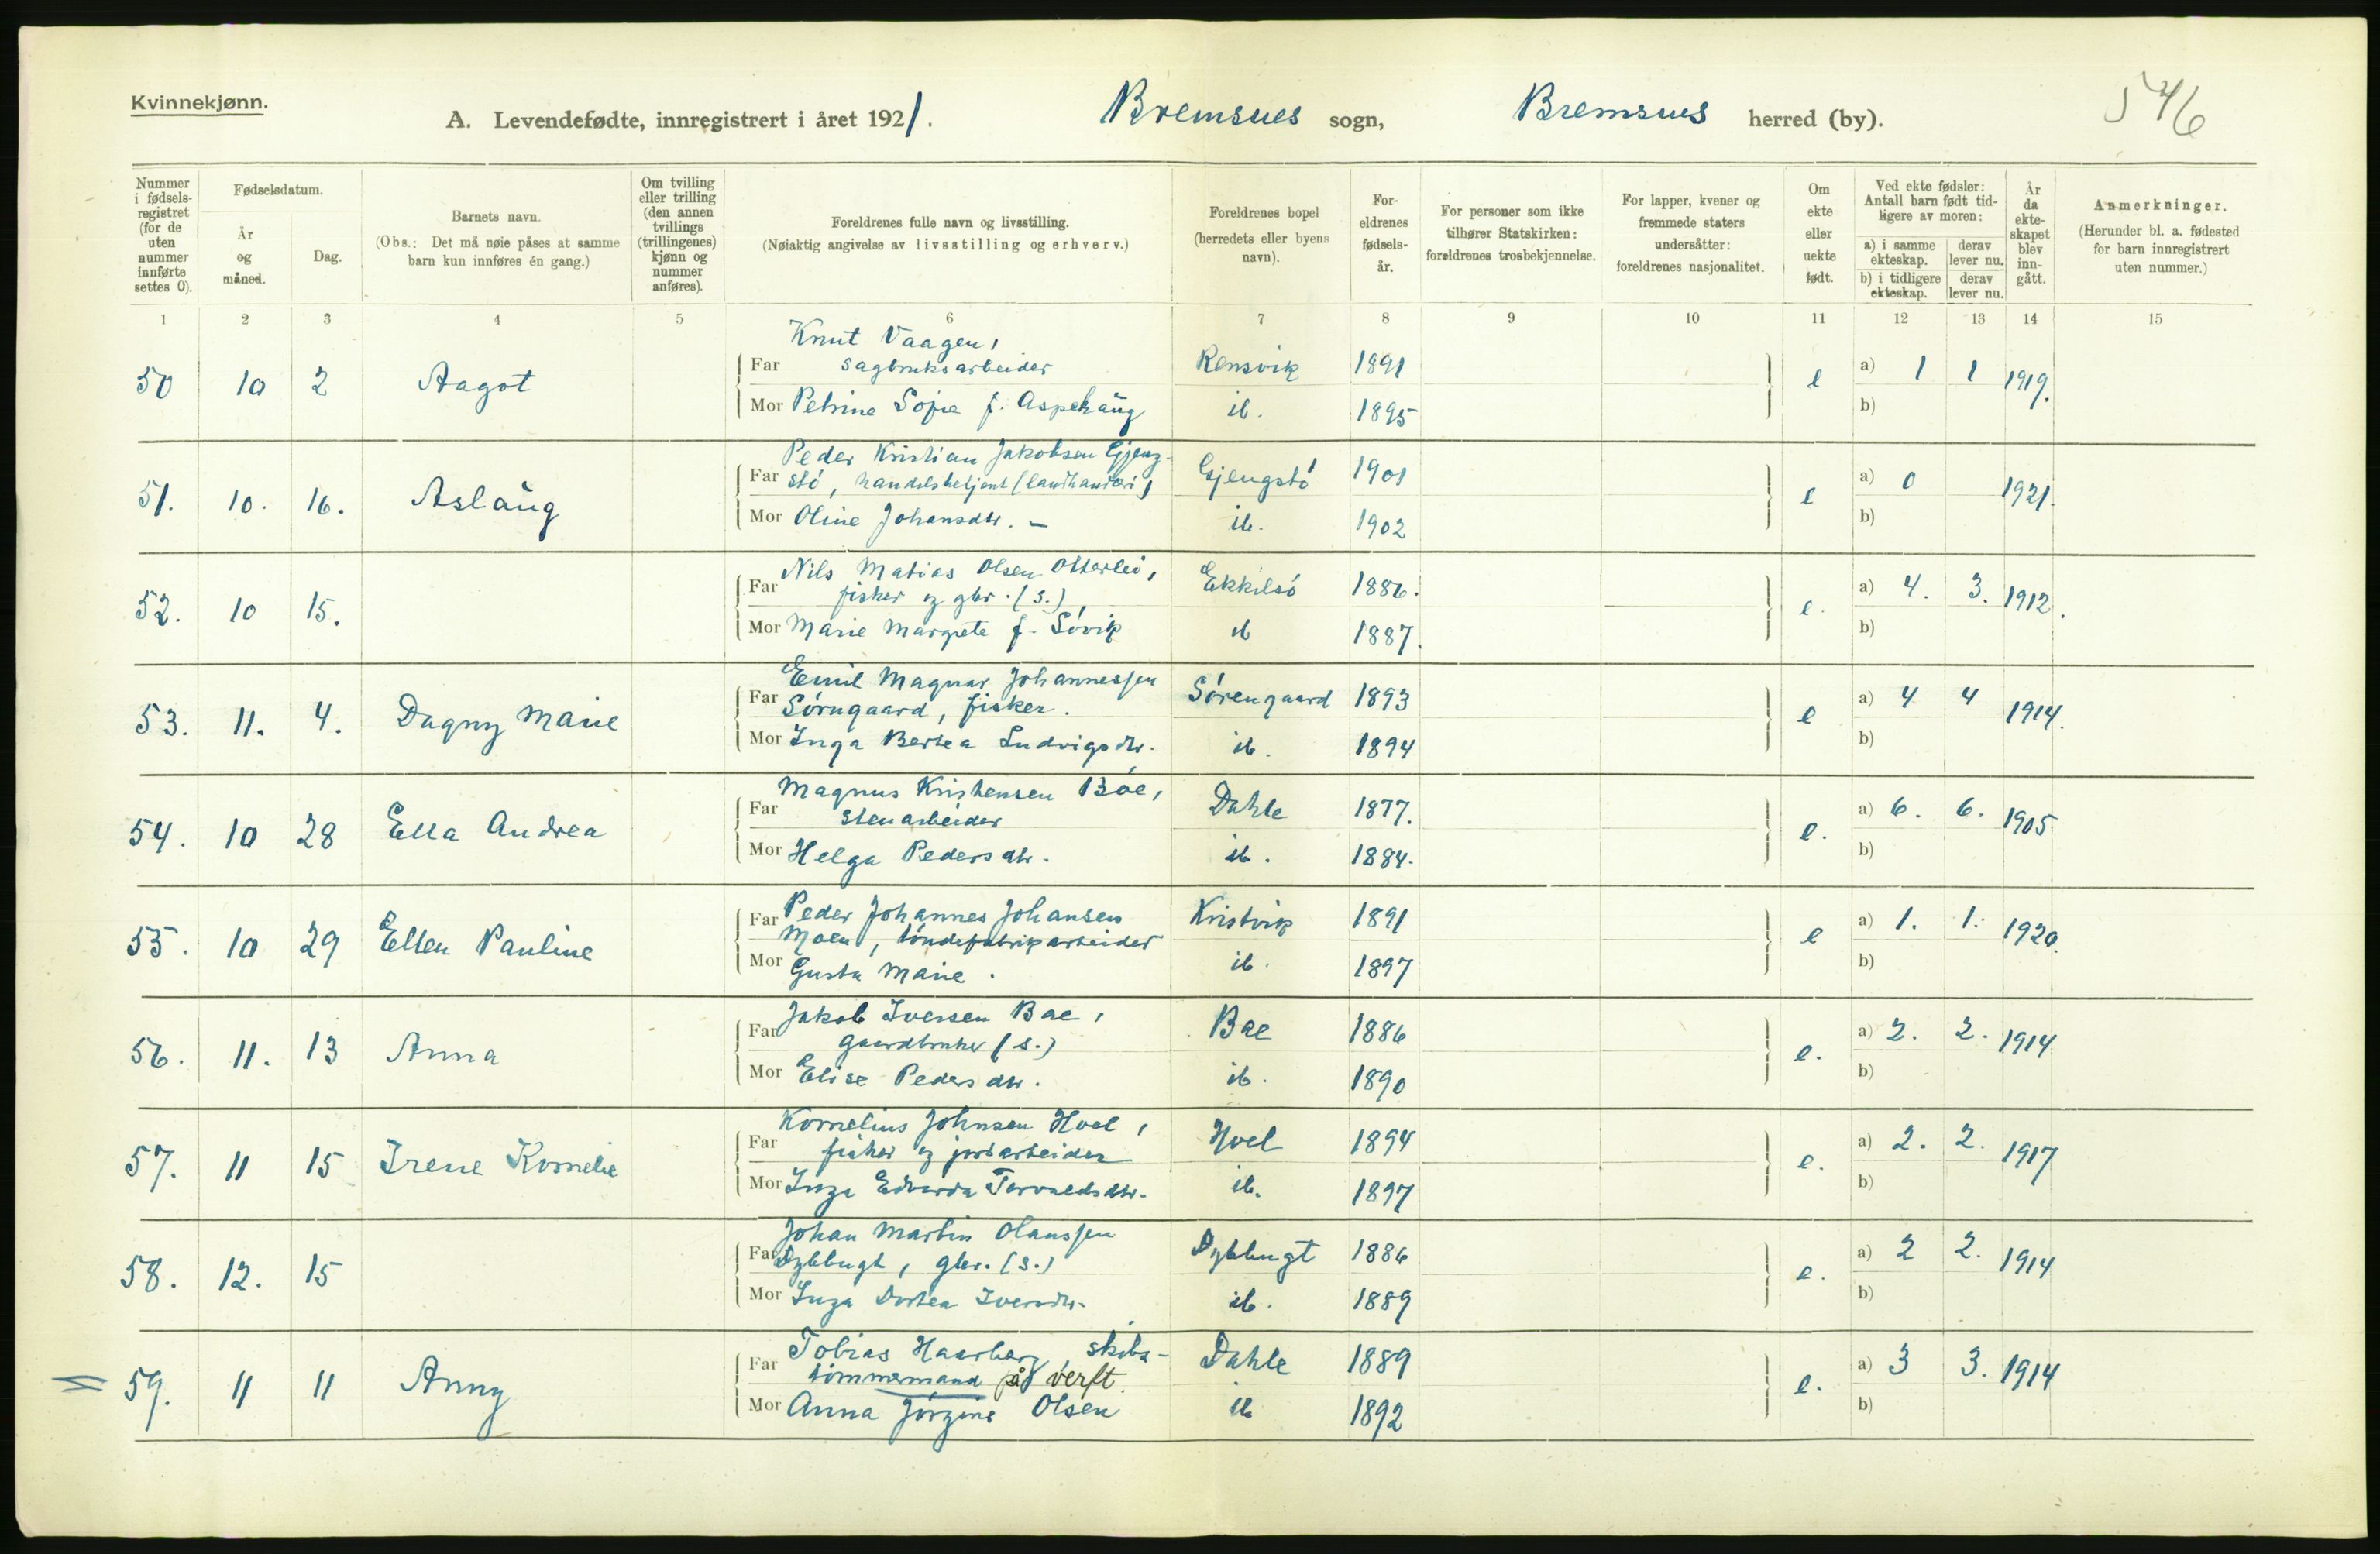 Kvinnekjønn.
A. Levendefødte, innregistrert i året 1921. Bremsnes sogn, Bremsnes herred (by). 546
Nummer i fødselsregistret (for de uten nummer innførte settes 0).
Fødselsdatum.
År og måned.
Dag.
Barnets navn.
(Obs.: Det må nøie påses at samme barn kun innføres én gang.)
Om tvilling eller trilling (den annen tvillings (trillingenes) kjønn og nummer anføres).
Foreldrenes fulle navn og livsstilling.
(Nøiaktig angivelse av livsstilling og erhverv.)
Foreldrenes bopel (herredets eller byens navn).
Foreldrenes fødselsår.
For personer som ikke tilhører Statskirken: foreldrenes trosbekjennelse.
For lapper, kvener og fremmede staters undersåtter: foreldrenes nasjonalitet.
Om ekte eller uekte født.
Ved ekte fødsler: Antall barn født tidligere av moren:
a) i samme ekteskap. derav lever nu.
b) i tidligere ekteskap. derav lever nu.
År da ekteskapet blev inngått.
Anmerkninger.
(Herunder bl. a. fødested for barn innregistrert uten nummer.)
1 2 3 4 5 6 7 8 9 10 11 12 13 14 15
Knut Vaagen,
50 10 2 Aagot Far sagbruksarbeider Rensvik 1891 e a) 1 1 1919.
Mor Petrine Sofie f. Aspehaug ib. 1895 b)
Peder Kristian Jakobsen Gjeng-
51. 10. 16. Aslaug Far stø, handelsbetjent (landhandleri) Gjengstø 1901 e a) 0 1921.
Mor Oline Johansdtr. – ib. 1902 b)
Nils Matias Olsen Otterlei,
52. 10 15. Far fisker og gbr. (s.) Ekkilsø 1886. e. a) 4. 3. 1912.
Mor Marie Margrete f. Søvik ib 1887. b)
Emil Magnar Johannessen
53. 11. 4. Dagny Marie Far Sørngaard, fisker. Sørengaard 1893 e a) 4 4 1914.
Mor Inga Bertea Ludvigsdtr. ib. 1894 b)
Magnus Kristensen Bøe,
54. 10 28 Ella Andrea Far stenarbeider Dahle 1877. e. a) 6. 6. 1905
Mor Helga Pedersdtr. ib. 1884. b)
Far Peder Johannes Johansen Kristvik 1891
55. 10 29 Ellen Pauline Moen, tøndefabrikarbeider e a) 1. 1. 1920.
Mor Gusta Marie. ib. 1897 b)
Jakob Iversen Bae,
56. 11. 13 Anna Far gaardbruker (s.) Bae 1886 e. a) 2. 2. 1914
Mor Elise Pedersdtr. ib. 1890 b)
Kornelius Johnsen Hoel,
57. 11 15 Irene Kornelie Far fisker og jordarbeider Hoel 1894 e. a) 2. 2. 1917
Mor Inga Edvarda Torvaldsdtr. ib. 1897 b)
Johan Martin Olaussen
58. 12. 15 Far Dybbugt, gbr. (s.) Dybbugt 1886 e. a) 2 2. 1914
Mor Inga Dortea Iversdtr. ib. 1889 b)
Tobias Haarberg, skibs-
= 59. 11 11 Anny Far tømmermand på verft. Dahle 1889 e. a) 3 3. 1914
Mor Anna Jørgine Olsen ib 1892 b)